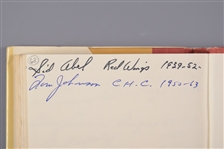 Sid Abel Red Wings 1939-52-
Tom Johnson C.H.C. 1950-63